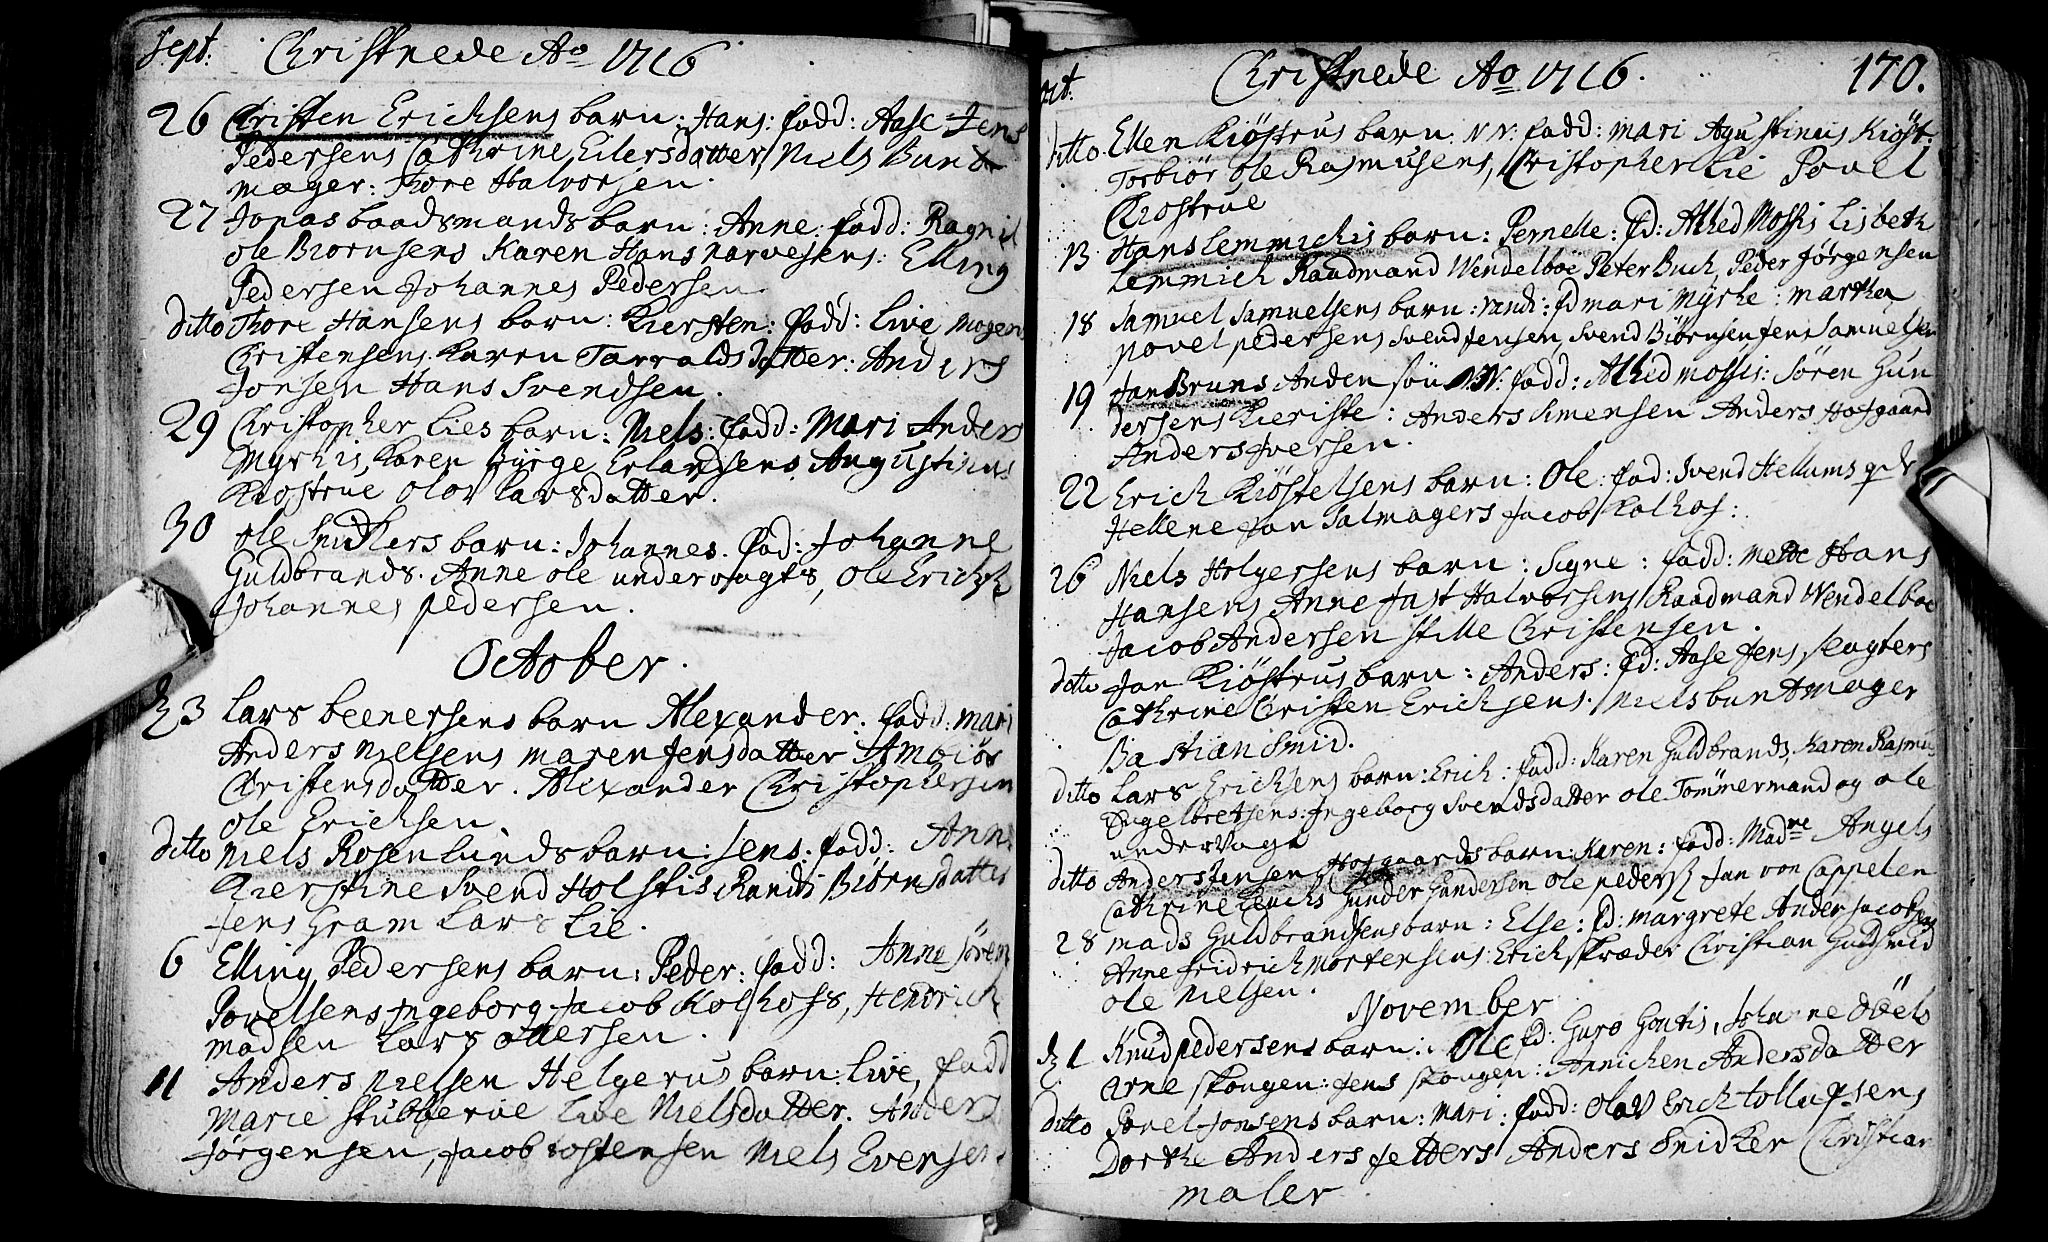 Sept: Christnede Ao 1716
26 Christen Ericksens barn: Hans: fadd: Aase Jens
Pedersens Cathrine Eilersdatter, Niels Bunt
mager: Thore Halvorsen.
27 Jonas baadsmands barn: Anne: fadd: Ragnil
ole Biornsens Karen Hans narvesens: Elling
Pedersen Johannes Pedersen
ditto Thore Hansens barn: Kiersten: fadd: Live Mogens
Christensens Karen Tarraldsdatter: Anders
Jonsen Hans Svendsen.
29 Christopher Lies barn: Niels: fadd: Mari Anders
Myrhis, Karen Byrge Erlandsens Angustinus
Kiostrue olov Larsdatter.
30 ole Snidkers barn: Johannes. fad: Johanne
Guldbrands. Anne ole undervogts, Ole Ericks
Johannes pedersen.
October.
d 3 Lars beenersens barn Alexander. fadd: mari
Anders Nielsens maren Jensdatter Ambiør
Christensdatter. Alexander Christophersen
ole Ericksen
ditto Niels Rosenlunds barn: Jens: fadd: Anne
Kierstine Svend Holstis Randi Biørnsdatter
Jens Gram Lars Lie.
6 Elling Pedersens barn: Peder: fadd: Anne Søren
Povelsens Ingeborg Jacob Kolhofs, Hendrich
madsen Lars ottersen.
11 Anders Nielsen Helgerus barn: Live, fadd
Marie Stubberue Live Nielsdatter. Anders
Jørgensen, Jacob tostensen Niels Evensen
oct. Christnede Ao 1716. 170.
ditto Ellen Kiøstrus barn. NN: fadd: mari Agustinus Kiøst:
Torbiør ole Rasmusens, Christopher Lie Povel
Kiostrue
13 Hans Lemmichis barn: Pernelle: fd: Alhed Mossis Lisbeth
Lemmich Raadmand Wendelboe Peter Buch, Peder Jørgensen
18 Samuel Samuelsens barn: randi: fd mari Myrhe: marthe
povel pedersens Svend Jensen, Svend Biørnsen Jens Samuelsen
19 Jan Bruns Anden søn NN: fadd: Alhed mossis: Søren Gun
dersens Kieriste: Anders Simensen Anders Hofgaard
Anders Iversen.
22 Erich Kiøstelsens barn: Ole: fad: Svend Hellums
Hellene Jan Salmagers Jacob Kolhof:
26 Niels Holgersens barn: Signe: fadd: Mette Hans
Hansens Anne Just Halvorsens Raadmand Wendelboe
Jacob Andersen stille Christensen.
ditto Jan Kiøstrus barn: Anders: fd: Aase Jens slagters
Cathrine Christen Ericksens. Niels buntmager
Bastian Smid.
ditto Lars Ericksens barn: Erich: fadd: Karen Guldbrands, Karen Rasmus
Engelbretsens: Ingeborg Svendsdatter ole Tømmermand og ole
undervogt
ditto Anders Jensen Hofgaards barn: Karen: fadd: Madme Angels
Cathrine Leuchs Gunder Gundersen ole peders Jan von Cappelen
28 mads Guldbrandsens barn: Else: fd: margrete Anders Jacobsens
Anne fridrich mortensens: Erich skræder Christian Guldsmid
ole Nielsen.
November
d 1 Knud pedersens barn: Ole fd: Guro Goutis, Johanne
Arne skougen: Jens skougen: Annichen Andersdatter
ditto Povel Jonsens barn: mari: fadd: Olav Erich tollufsens
Dorthe Anders fetters Anders Snidker Christian
maler